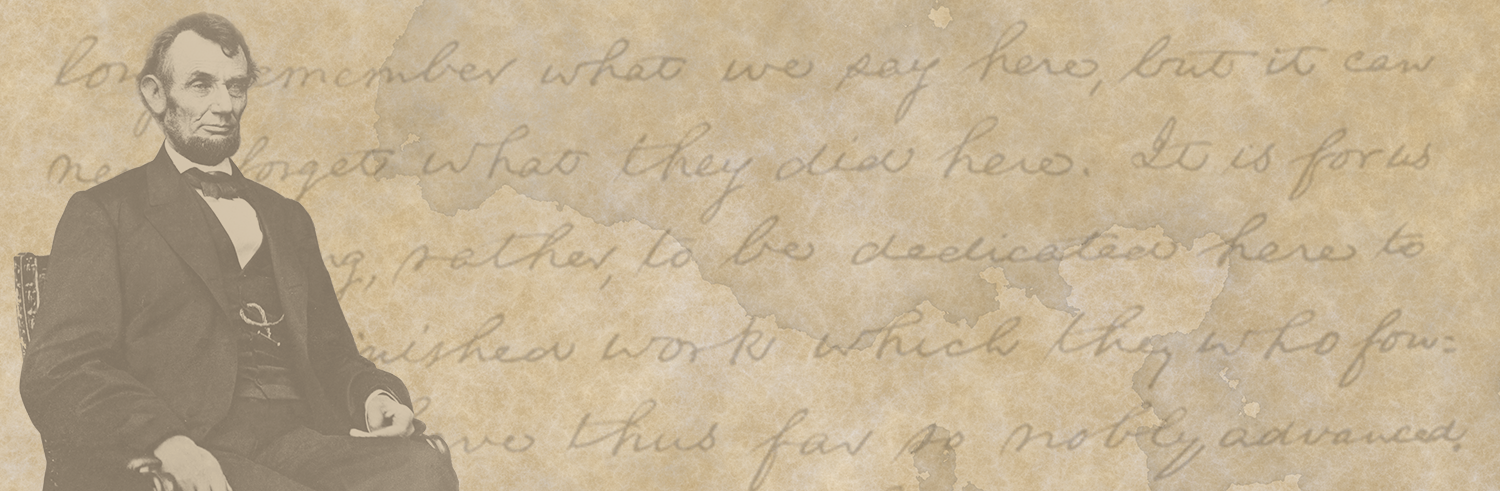 long remember what we say here, but it can
never forget what they did here. It is for us
rather, to be dedicated here to
work which they who fou=
thus far so nobly advanced.